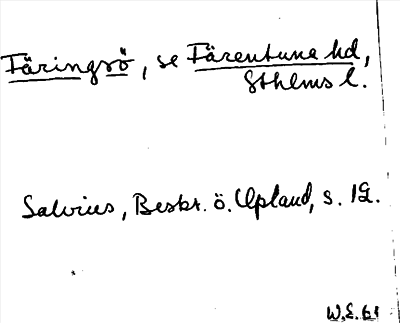 Färingsö, se Färentuna hd,
Sthlms l.
Salvius, Beskr. ö. Upland, s. 12.
W.E. 61